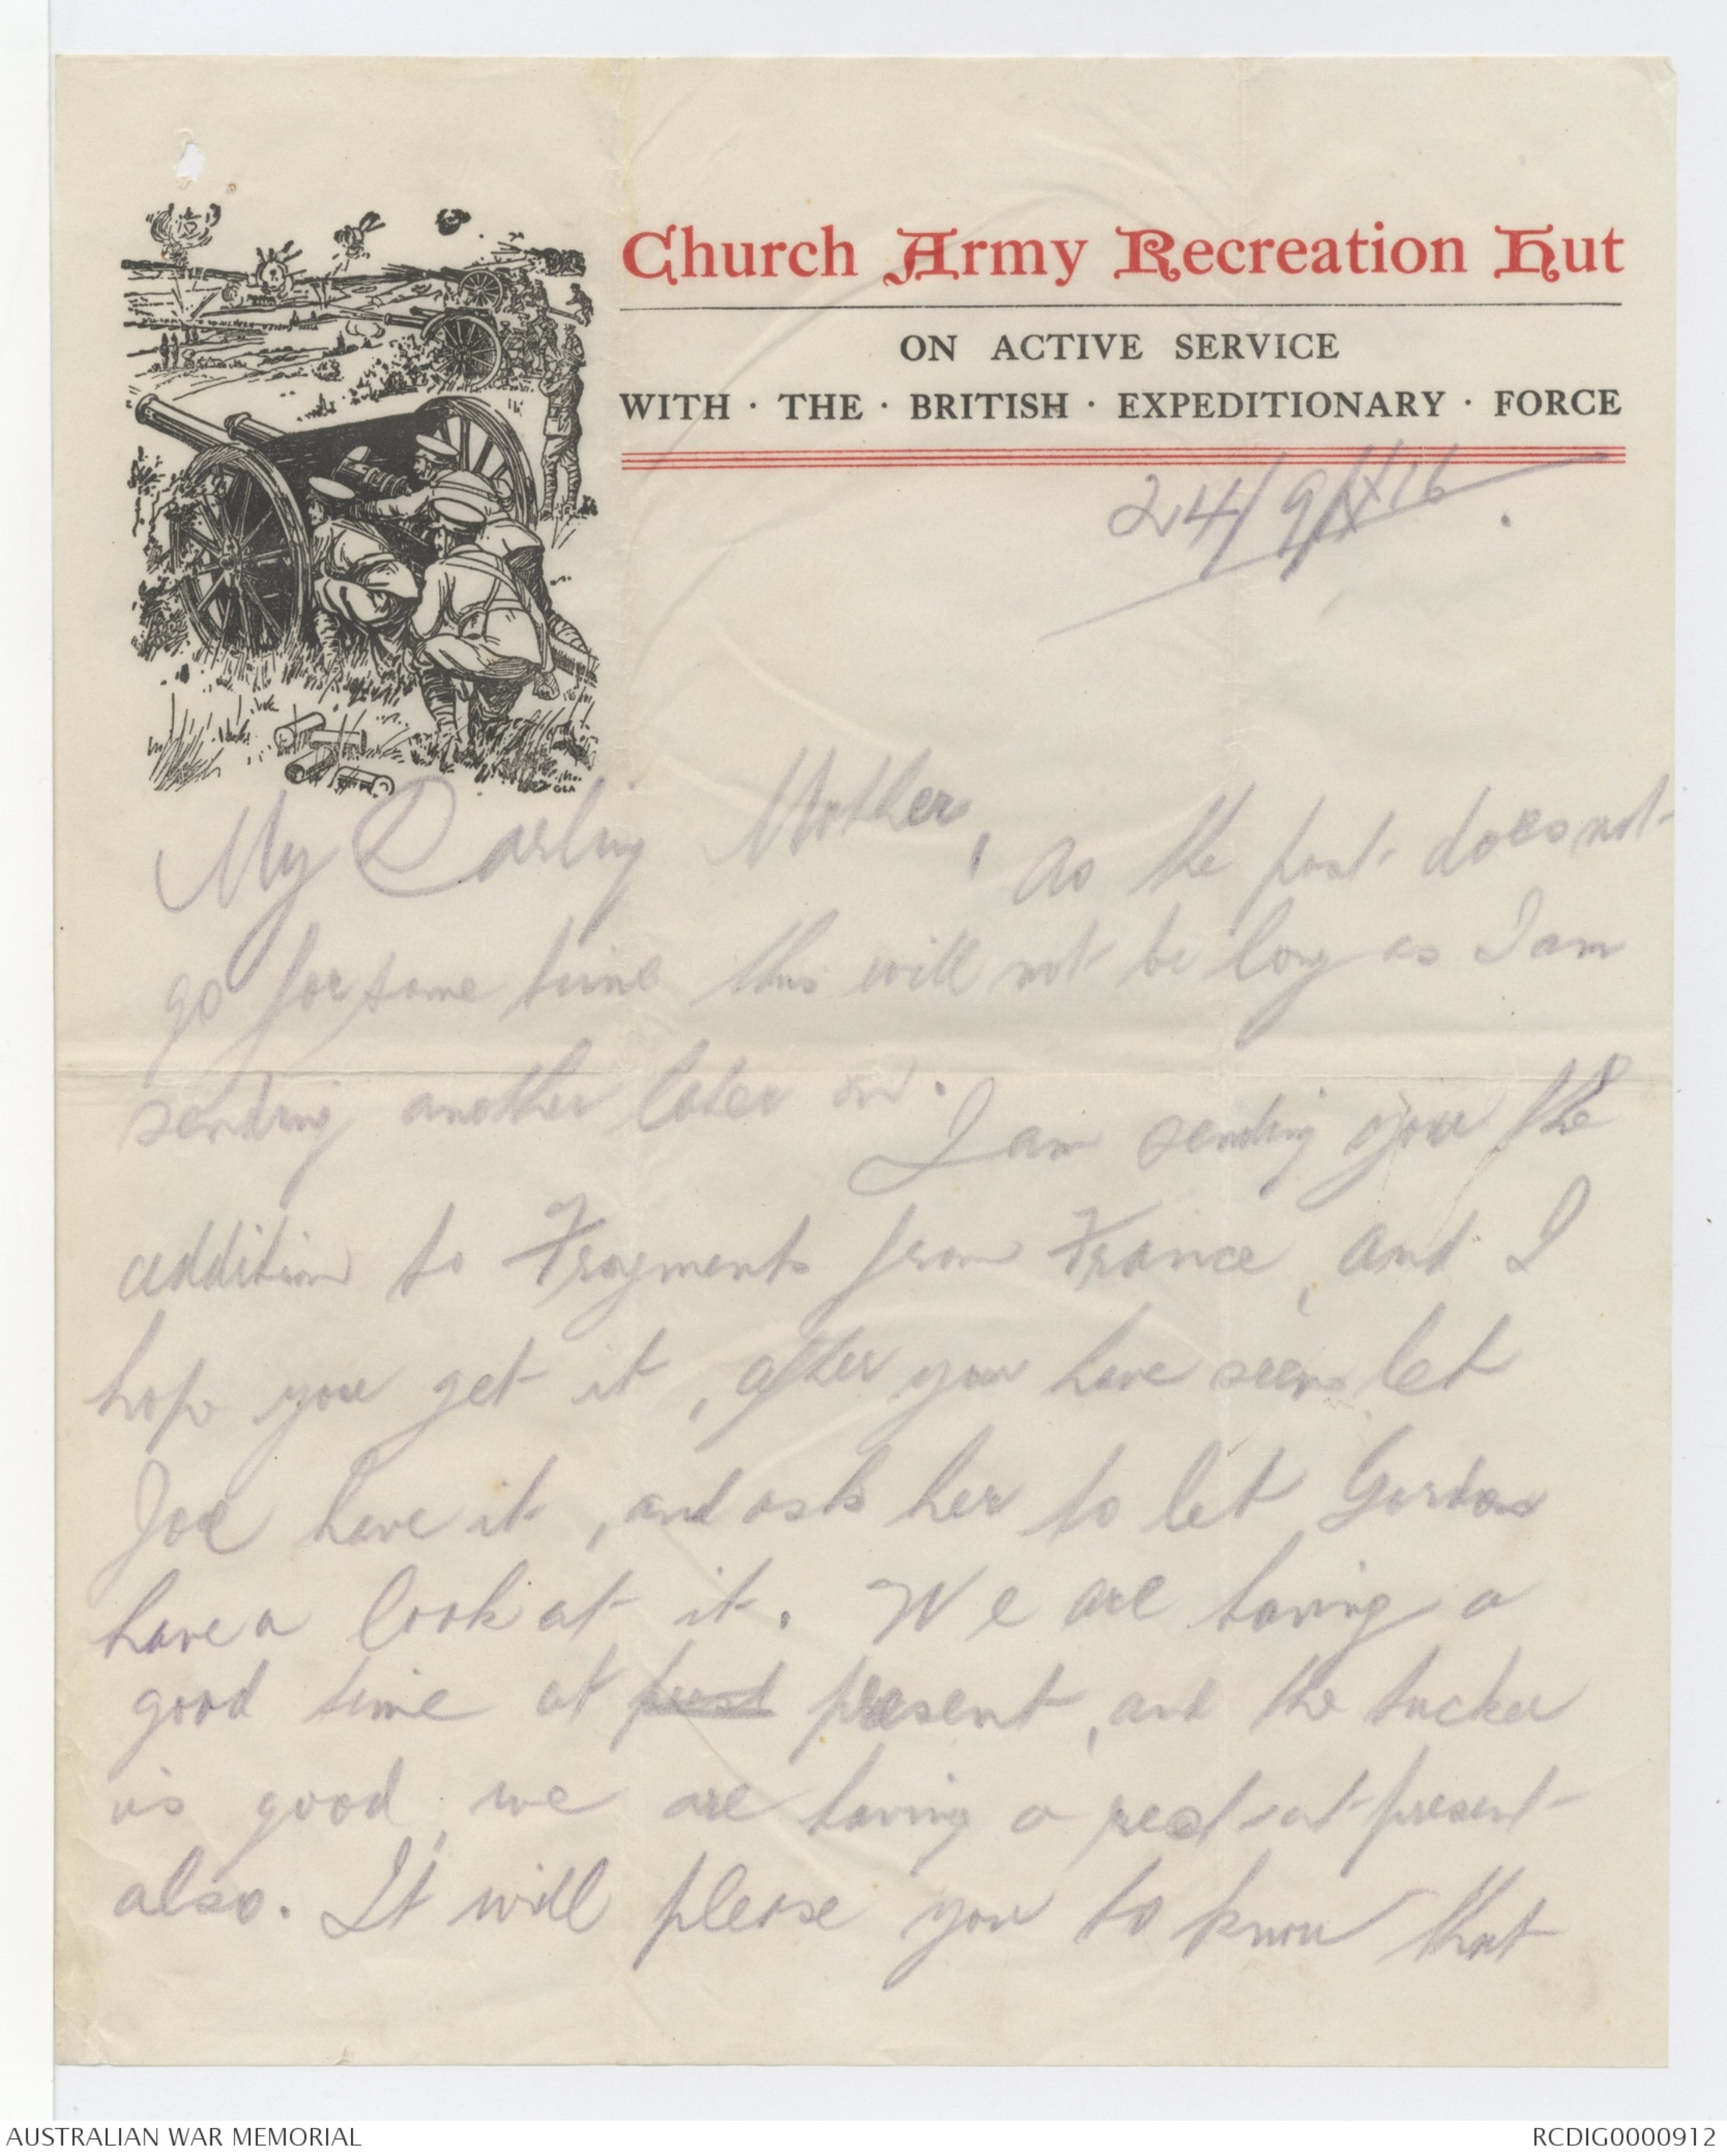 Church Army Recreation Hut
ON ACTIVE SERVICE
WITH · THE · BRITISH · EXPEDITIONARY · FORCE
24/9/16.
My Darling Mother, as the post does not
go for some time this will not be long as I am
sending another later on. I am sending you the
addition to Fragments from France, and I
hope you get it, after you have seen let
Joe have it, and ask her to let Gordon
have a look at it. We are having a
good time at present, and the tucker
is good, we are having a rest at present
also. It will please you to know that
AUSTRALIAN WAR MEMORIAL
RCDIG0000912